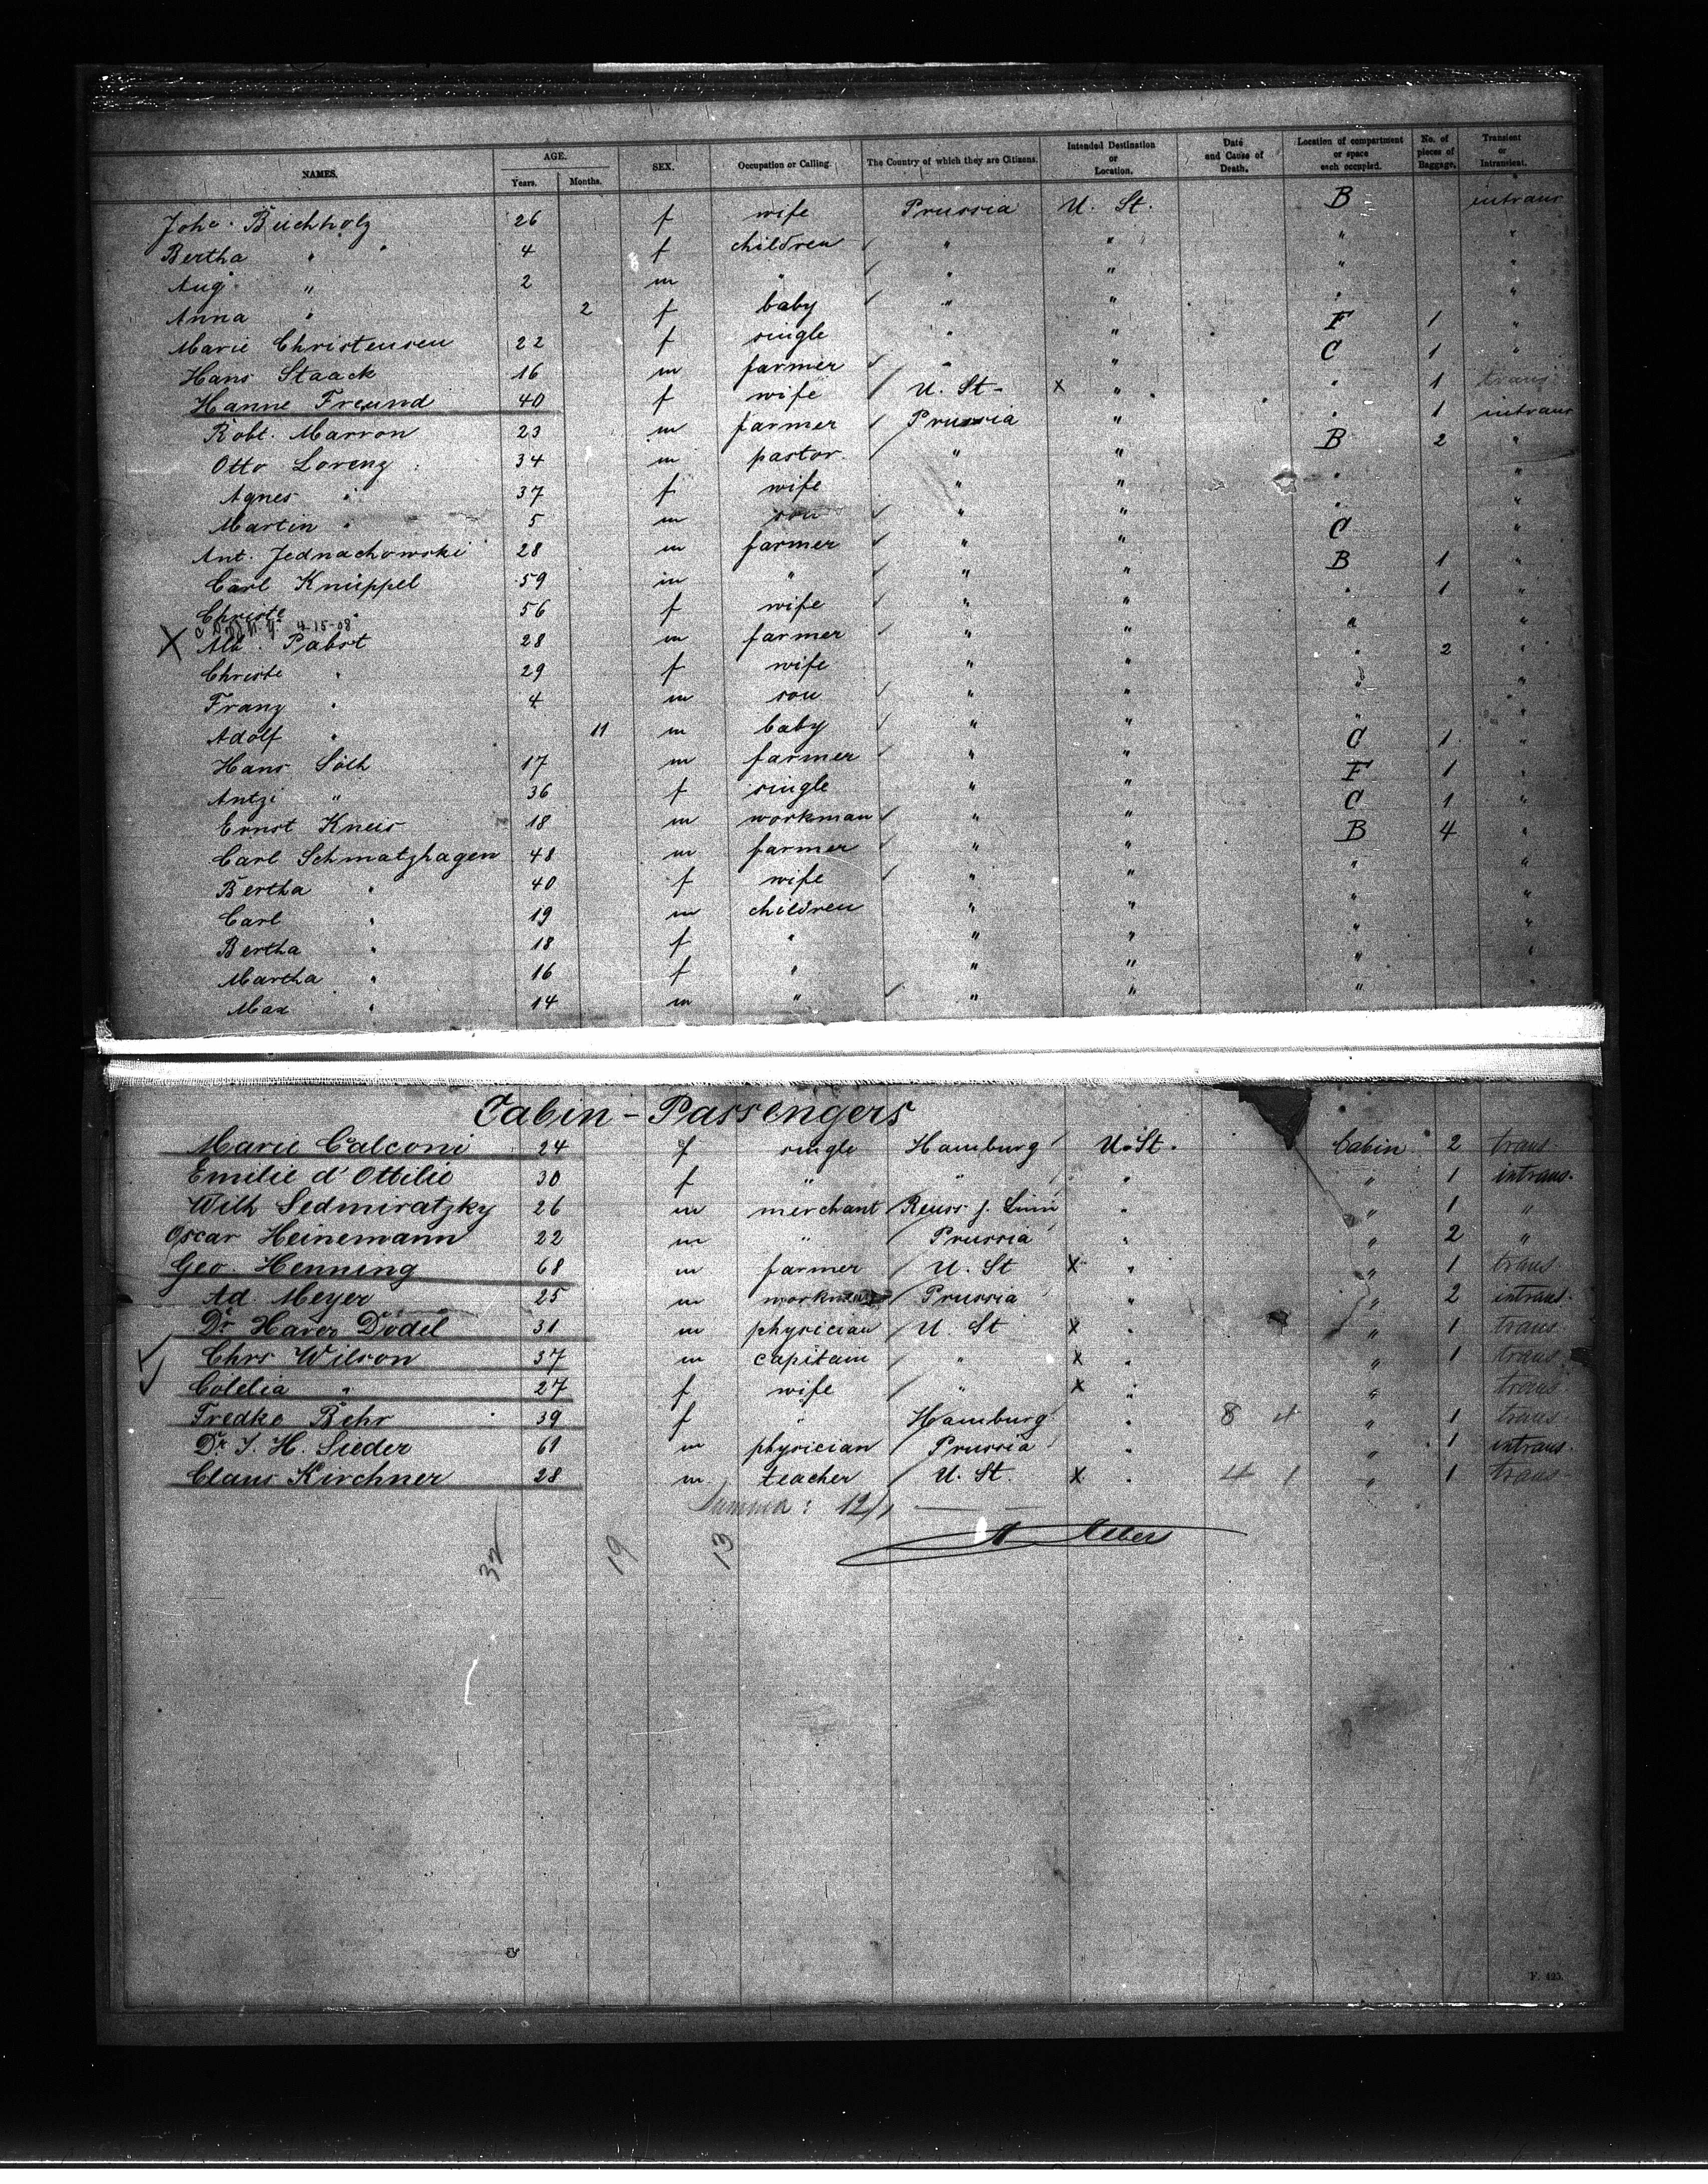 NAMES. AGE. Years. Months. SEX. Occupation or Calling. The Country of which they are Citizens. Intended Destination or Location. Date and Cause of Death. Location of compartment or space each occupied. No. of pieces of Baggage. Transient or Intransient.
Johe. Buchholz 26 f wife Prussia U. St. B intrans
Bertha " 4 f children " " " "
Aug. " 2 m " " " " "
Anna " 2 f baby " " " "
Marie Christensen 22 f single " " F 1 "
Hans Staack 16 m farmer " " C 1 "
Hanne Freund 40 f wife U. St- X " " 1 trans
Robt. Marron 23 m farmer Prussia " " 1 intrans
Otto Lorenz 34 m pastor " " B 2 "
Agnes " 37 f wife " " " "
Martin " 5 m son " " " "
Ant. Jednachowski 28 m farmer " " C "
Carl Knüppel 59 m " " " B 1 "
Christe " 56 f wife " " " 1 "
4-15-08
X Alb. Pabst 28 m farmer " " " "
Christe " 29 f wife " " " 2 "
Franz " 4 m son " " " "
Adolf " 11 m baby " " " "
Hans Söth 17 m farmer " " C 1 "
Antzi " 36 f single " " F 1 "
Ernst Kneis 18 m workman " " C 1 "
Carl Schmatzhagen 48 m farmer " " B 4 "
Bertha " 40 f wife " " " "
Carl " 19 m children " " " "
Bertha " 18 f " " " " "
Martha " 16 f " " " " "
Max " 14 m " " " " "
Cabin-Passengers
Marie Calconi 24 f single Hamburg U. St. Cabin 2 trans
Emilie d'Ottilie 30 f " " " " 1 intrans.
Wilh Sedmiratzky 26 m merchant Reuss j. Linie " " 1 "
Oscar Heinemann 22 m " Prussia " " 2 "
Geo. Henning 68 m farmer U. St X " " 1 trans
Ad. Meyer 25 m workman Prussia " " 2 intrans.
Dr Haver Dödel 31 m physician U. St X " " 1 trans
Chrs Wilson 37 m capitain " X " " 1 trans
Colelia " 27 f wife " X " " trans
Fredke Behr 39 f " Hamburg " 8 " 1 trans
Dr J. H. Sieder 61 m physician Prussia " " 1 intrans.
Claus Kirchner 28 m teacher U. St. X " 4 1 " 1 trans
Summa: 12/1
A Albers
32 19 13
F. 425.